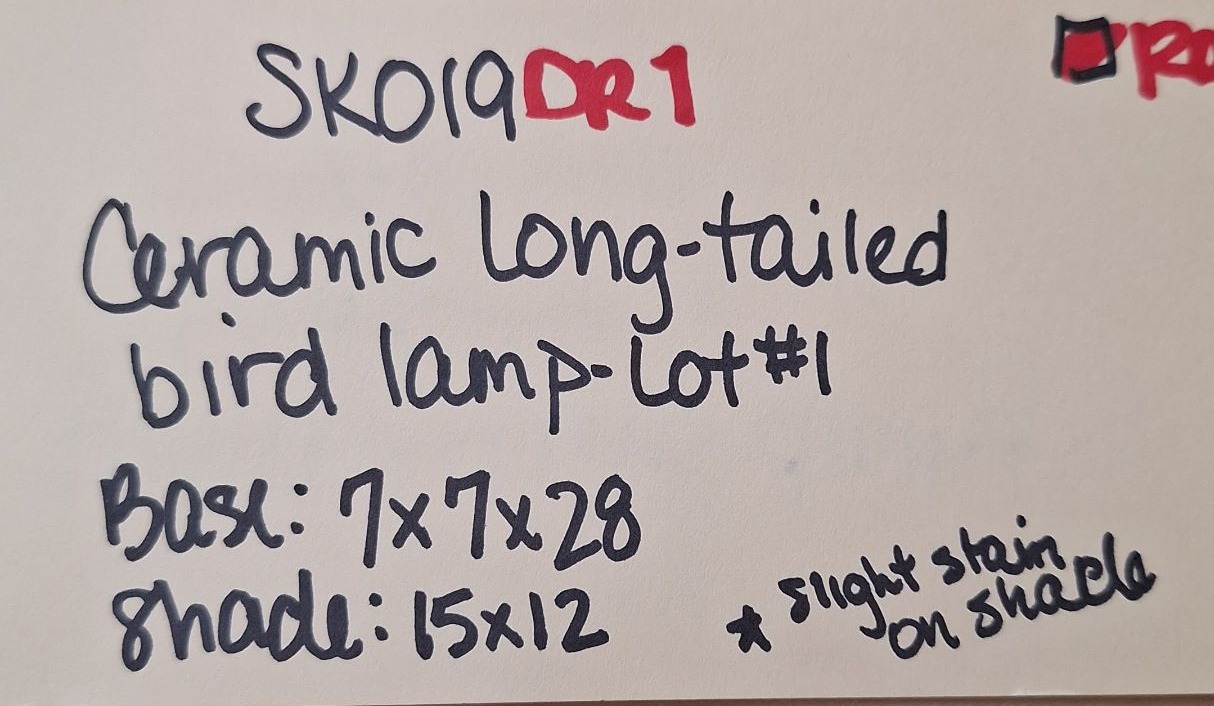 SK019DR1
Ceramic Long-tailed
bird lamp-Lot #1
Base: 7x7x28
Shade: 15x12
* slight stain
on shade